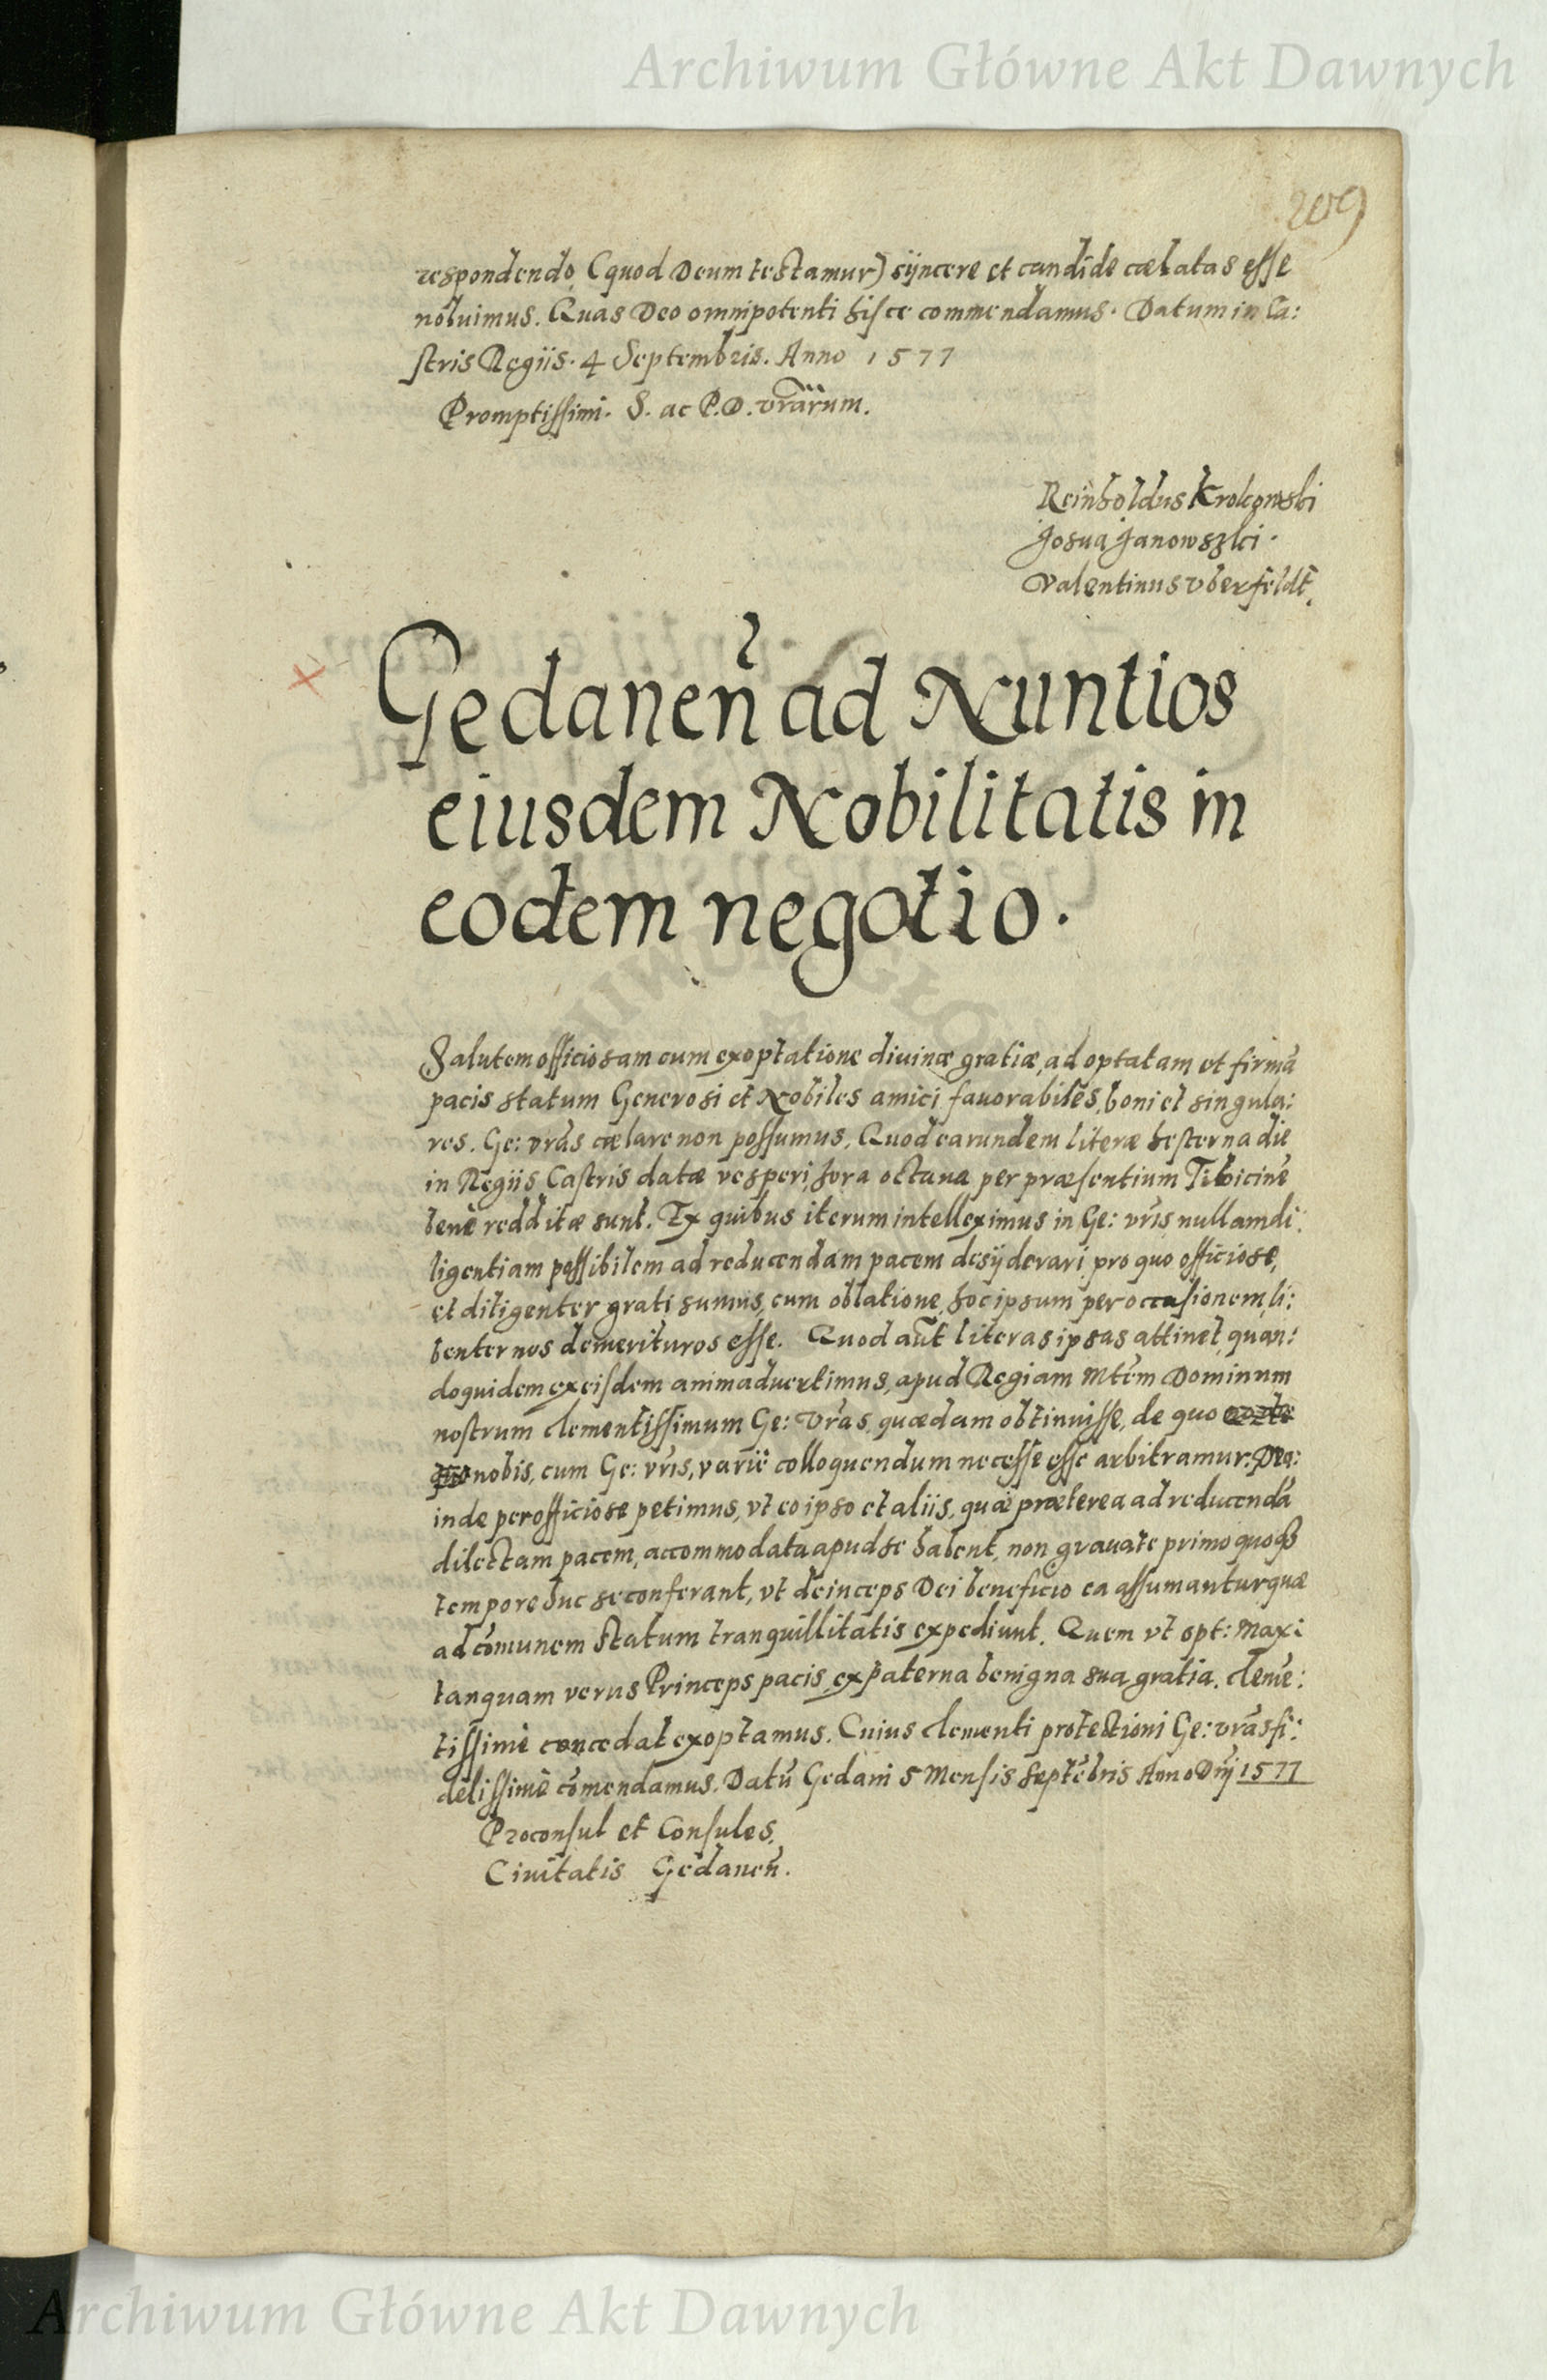 Archiwum Główne Akt Dawnych
209
respondendo, (quod Deum testamur) sÿncere et candide cælatas esse
noluimus. Quas Deo omnipotenti hisce commendamus. Datum in Ca:
stris Regiis. 4 Septembris. Anno 1577
Promptissimi. S. ac P. D. vrãrum.
Reinholdus Krokowski
Josua Janowszki.
Valentinus vberfeldt.
Gedaneñ ad Nuntios
eiusdem Nobilitatis in
eodem negotio.
Salutem officiosam cum exoptatione diuinæ gratiæ, ad optatam et firmã
pacis statum Generosi et Nobiles amici fauorabiles, boni et singula:
res. Ge: vrãs cælare non possumus, Quod earundem literæ hesterna die
in Regiis Castris datæ vesperi, hora octaua per præsentium Tibicinẽ
benè redditæ sunt. Ex quibus iterum intelleximus in Ge: vrĩs nullam di:
ligentiam possibilem ad reducendam pacem desÿderari pro quo officiose,
et diligenter grati sumus, cum oblatione, hoc ipsum per occasionem, li:
benter nos demerituros esse. Quod aũt literas ipsas attinet, quan:
doquidem ex eisdem animaduertimus, apud Regiam Mtẽm Dominum
nostrum clementissimum Ge: Vrãs, quædam obtinuisse, de quo
nobis, cum Ge: vrĩs, variè colloquendum necesse esse arbitramur: Pro:
inde perofficiose petimus, vt eo ipso et aliis, quæ præterea ad reducendã
dilectam pacem, accommodata apud se habent, non grauate primo quoqꝫ
tempore huc se conferant, vt deinceps Dei beneficio ea assumantur, quæ
ad cõmunem statum tranquillitatis expediunt. Quem vt opt: Max:
tanquam verus Princeps pacis, ex paterna benigna sua gratia, clemẽ:
tissimè concedat exoptamus. Cuius clementi protectioni Ge: vrãs fi:
delissimè cõmendamus. Datũ Gedani 5 Mensis Septẽbris Anno Dñj 1577
Proconsul et Consules,
Ciuitatis Gedaneñ.
Archiwum Główne Akt Dawnych